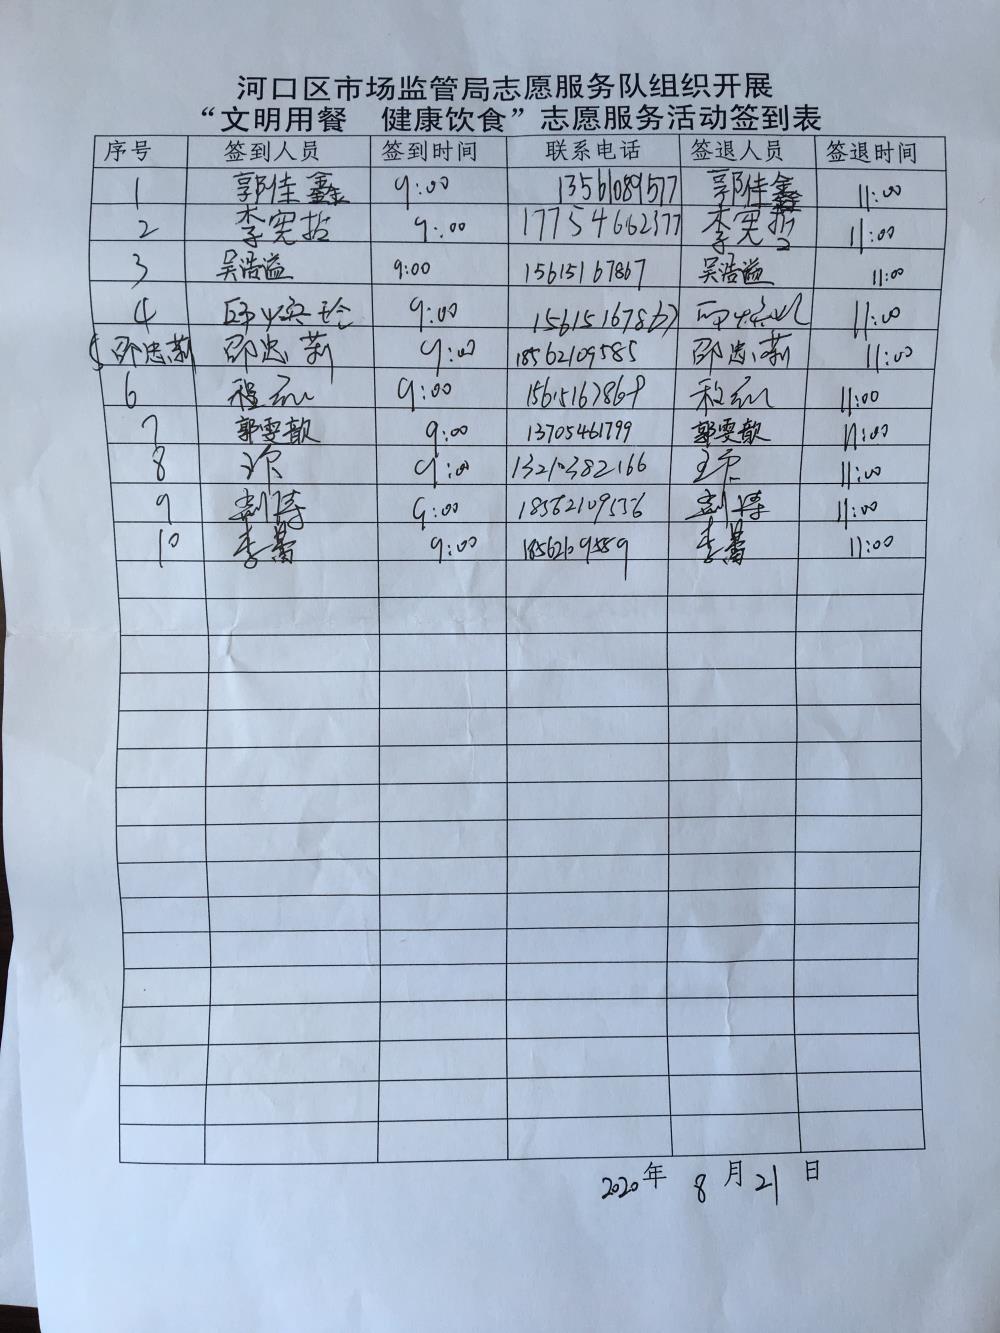 河口区市场监管局志愿服务队组织开展
“文明用餐 健康饮食”志愿服务活动签到表
序号 签到人员 签到时间 联系电话 签退人员 签退时间
1 郭佳鑫 9:00 13561089577 郭佳鑫 11:00
2 李宪哲 9:00 17754662377 李宪哲 11:00
3 吴浩溢 9:00 15615167867 吴浩溢 11:00
4 9:00 15615167867 11:00
5 邵忠莉 邵忠莉 9:00 18562109585 邵忠莉 11:00
6 程 9:00 15615167869 程 11:00
7 郭雯歆 9:00 13705461799 郭雯歆 11:00
8 9:00 13210382166 11:00
9 刘博 9:00 18562109556 刘博 11:00
10 李蕾 9:00 18562109589 李蕾 11:00
2020年 8月21日